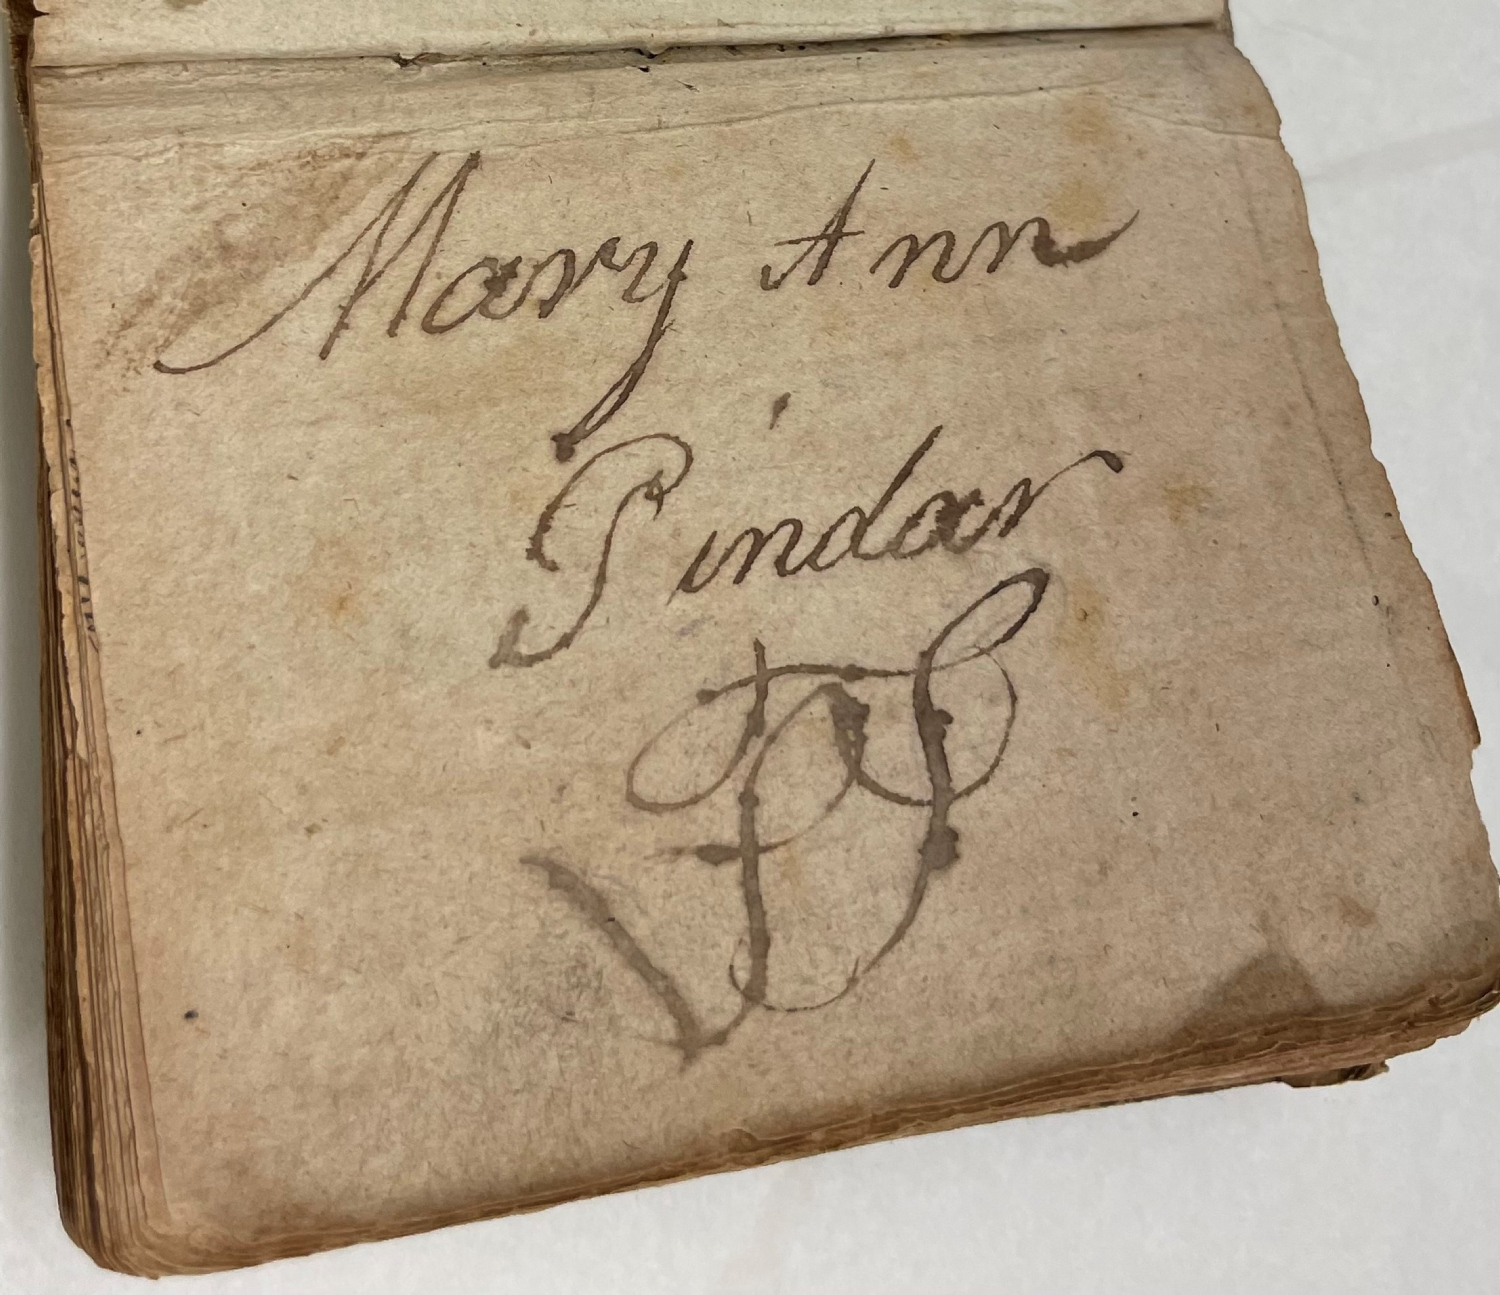 Mary Ann
Pindar